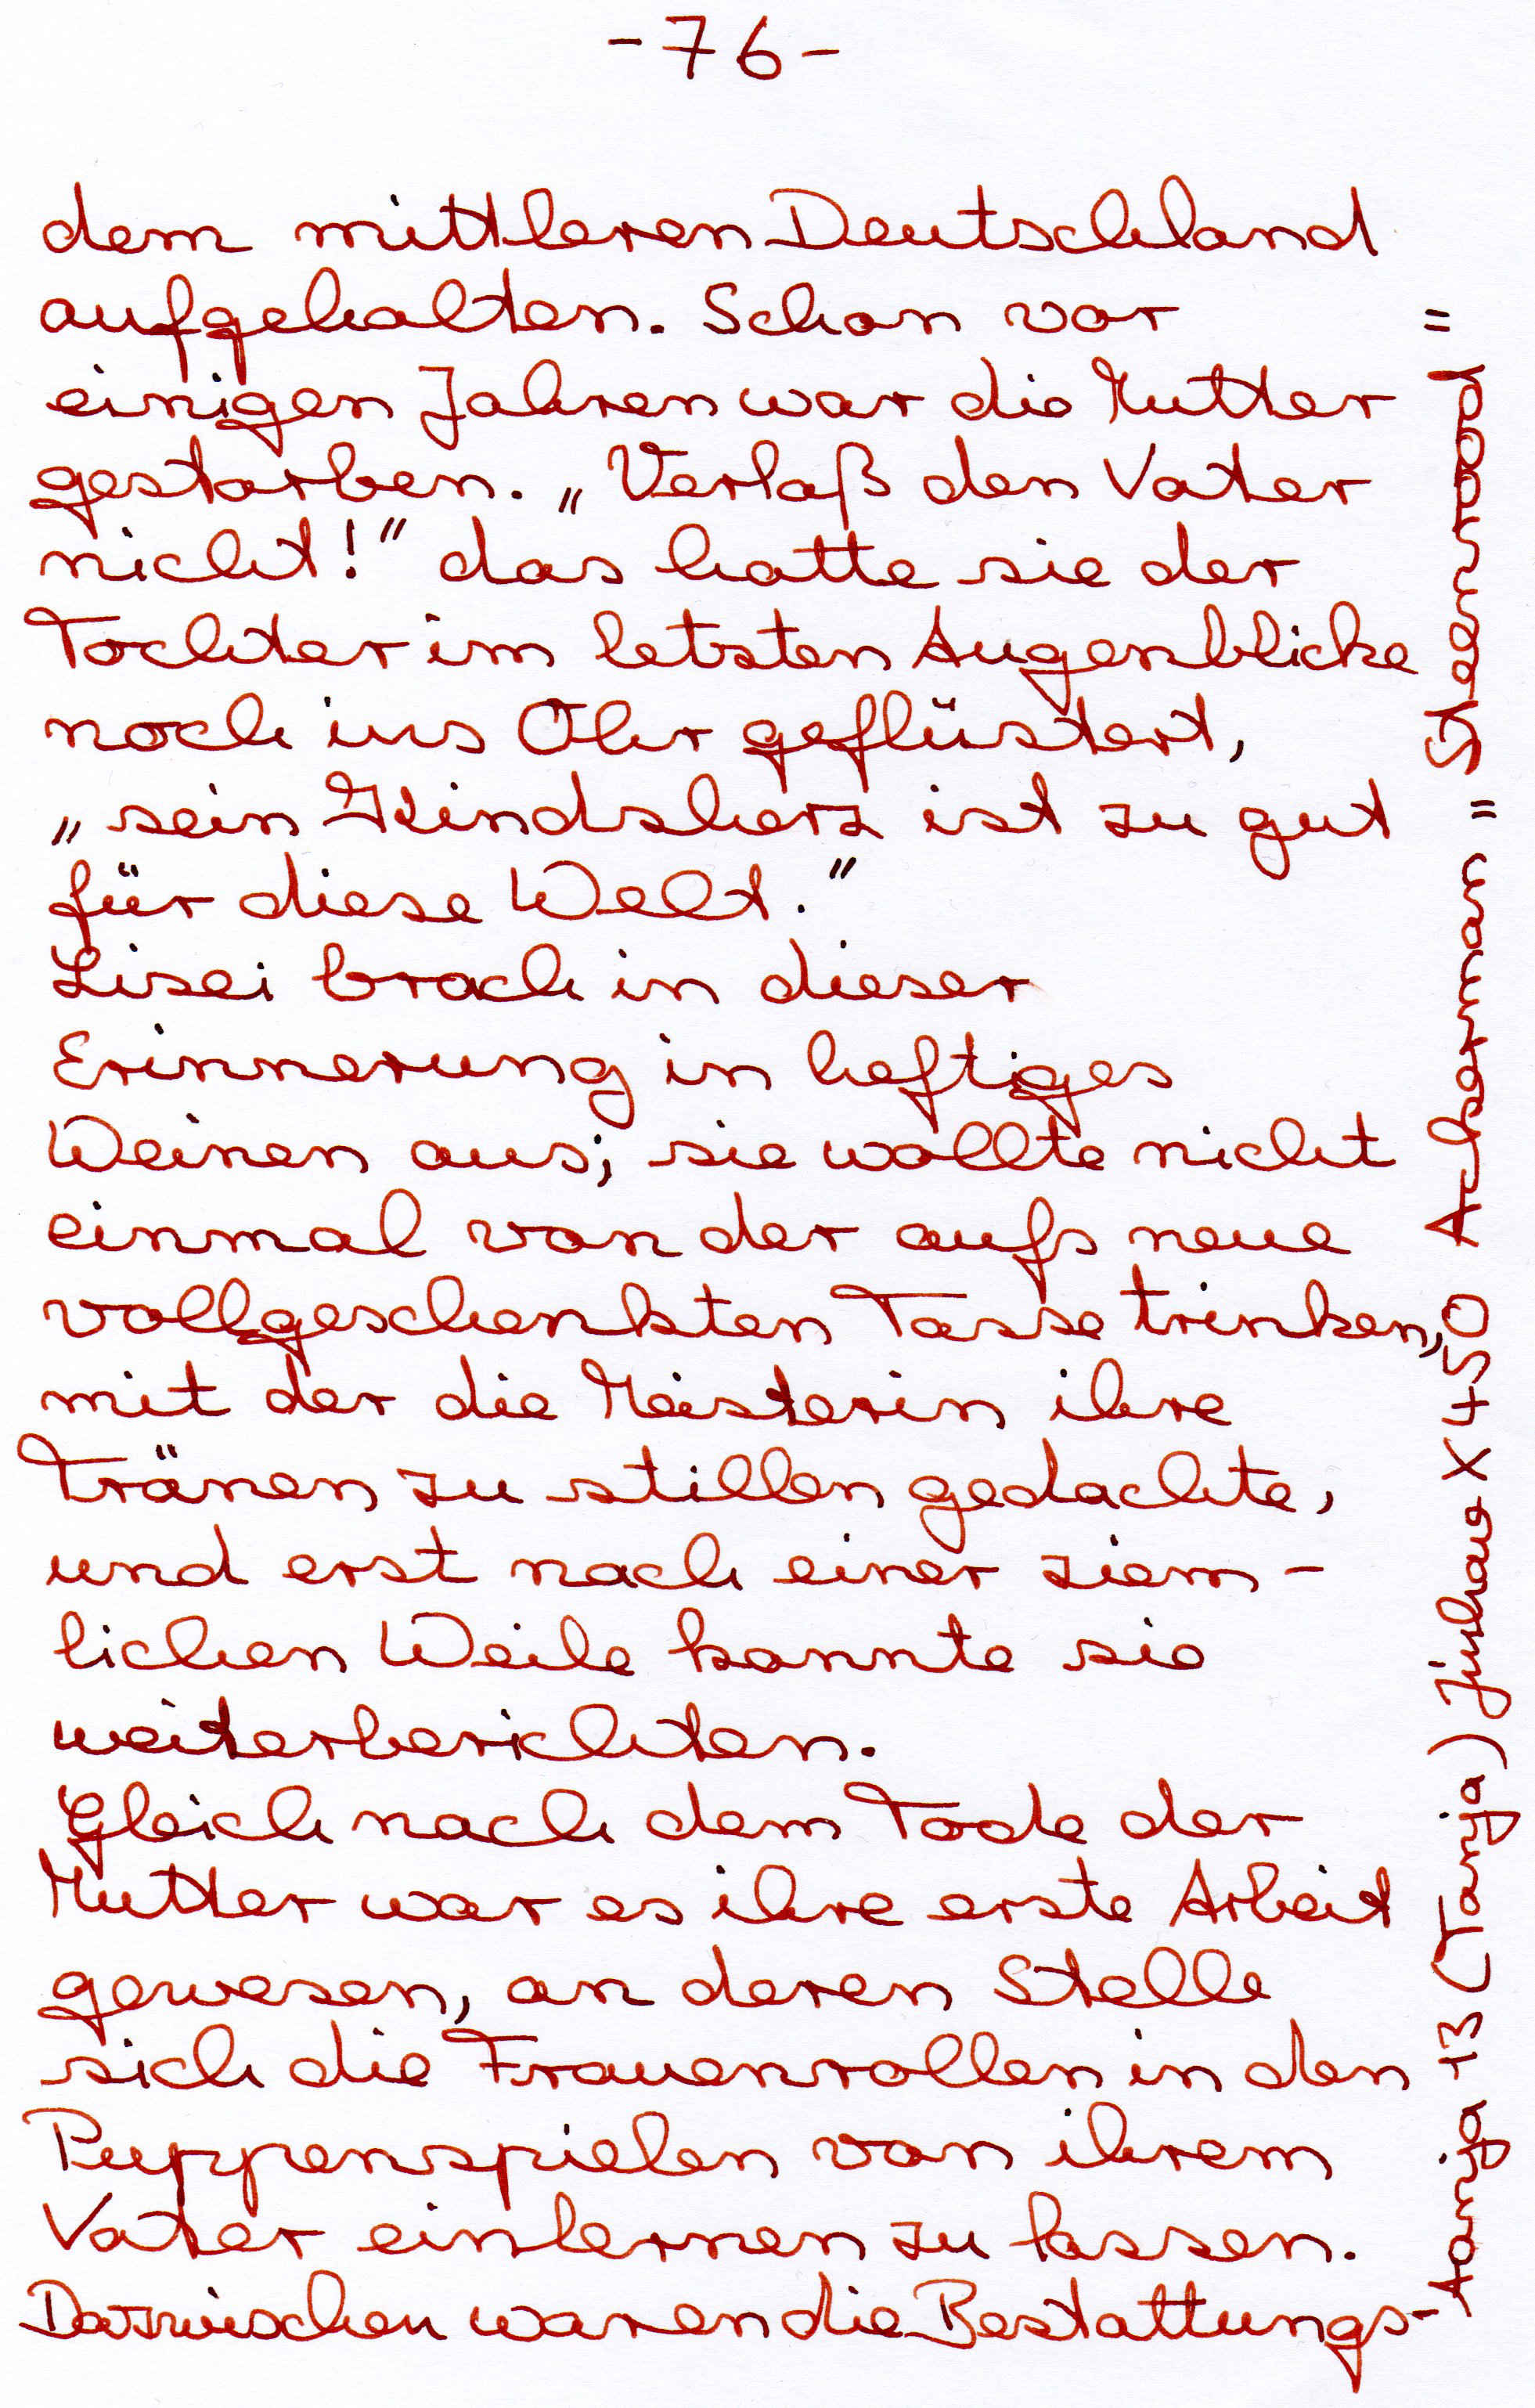 -76-
dem mittleren Deutschland
aufgehalten. Schon vor
einigen Jahren war die Mutter
gestorben. „Verlaß den Vater
nicht!" das hatte sie der
Tochter im letzten Augenblicke
noch ins Ohr geflüstert,
„sein Kindsherz ist zu gut
für diese Welt."
Lisei brach in dieser
Erinnerung in heftiges
Weinen aus; sie wollte nicht
einmal von der aufs neue
vollgeschenkten Tasse trinken,
mit der die Meisterin ihre
Tränen zu stillen gedachte,
und erst nach einer ziem-
lichen Weile konnte sie
weiterberichten.
Gleich nach dem Tode der
Mutter war es ihre erste Arbeit
gewesen, an deren Stelle
sich die Frauenrollen in den
Puppenspielen von ihrem
Vater einlernen zu lassen.
Dazwischen waren die Bestattungs-
tanja 13 (Tanja) X 450 Ackerman =
=